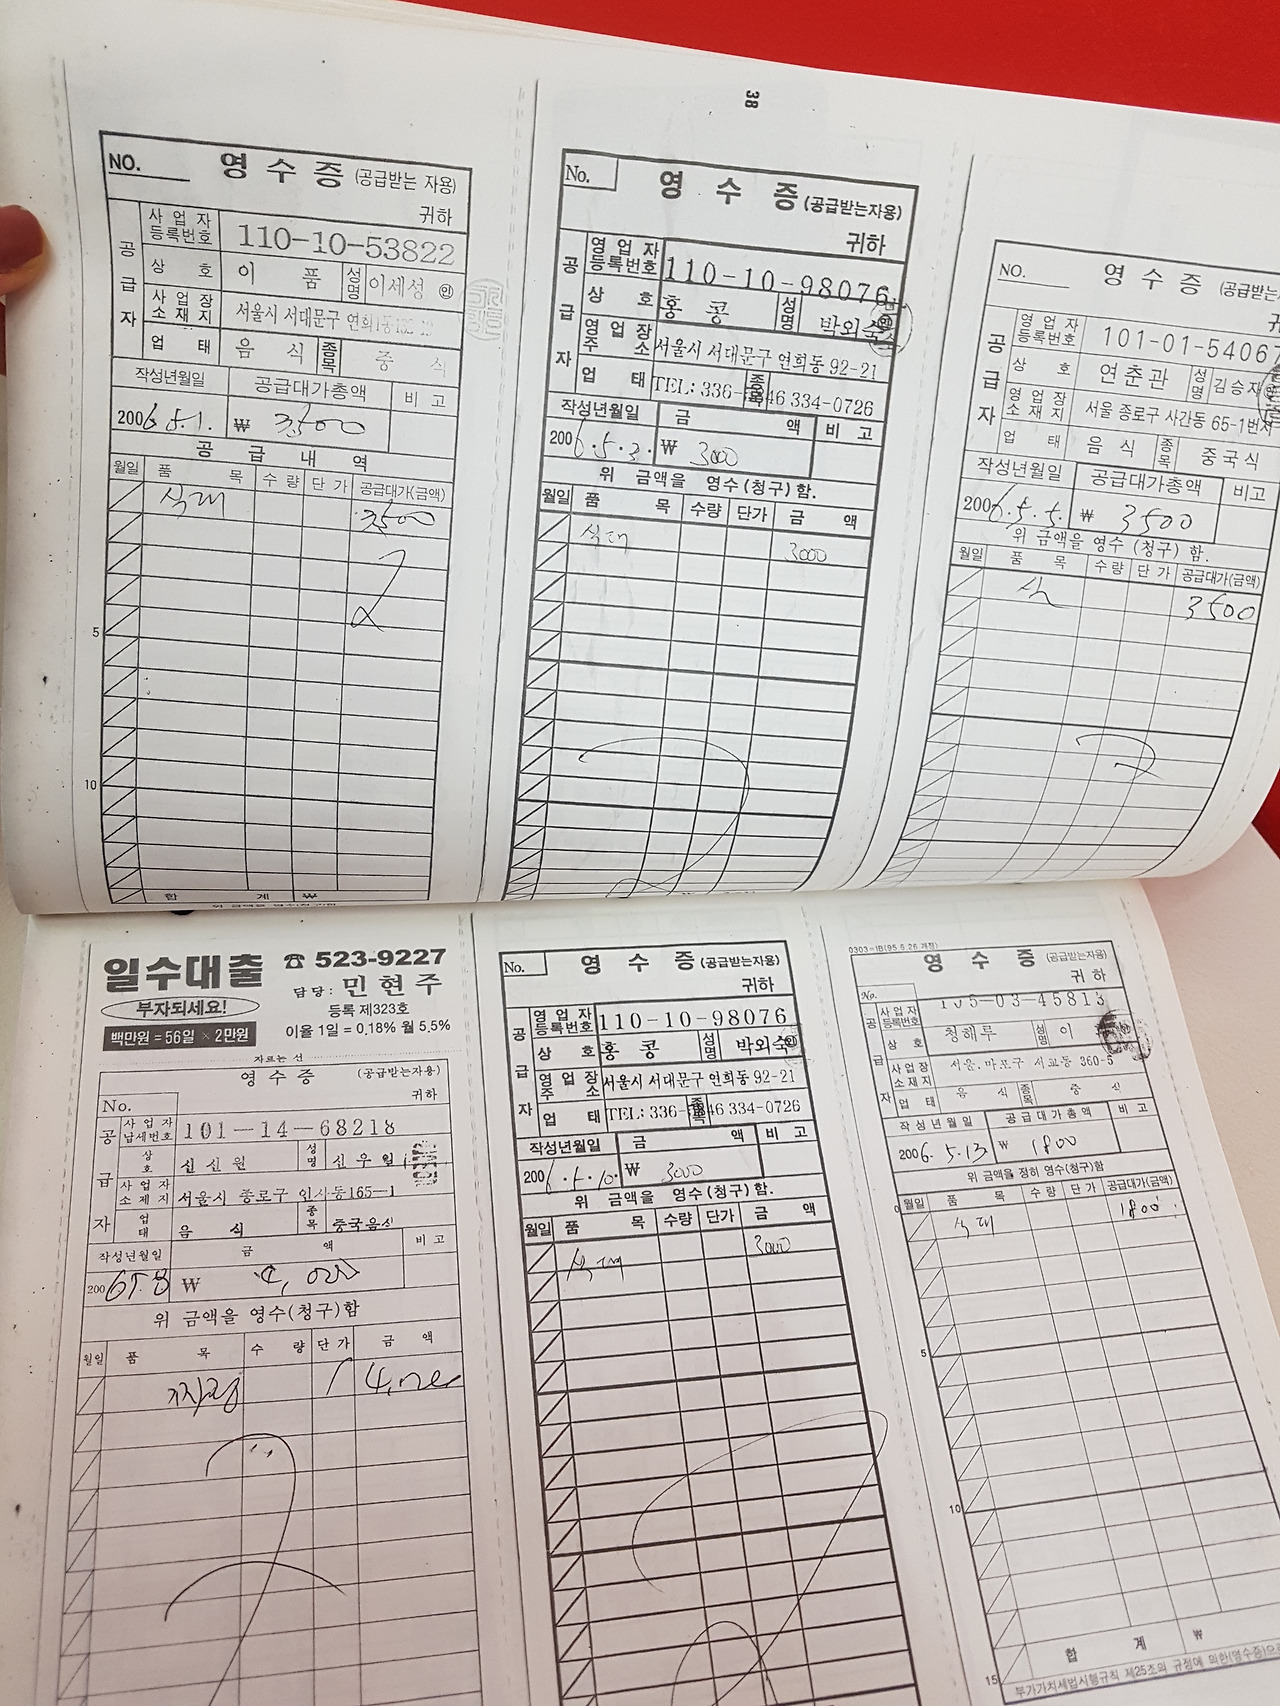 38
NO.
영 수 증 (공급받는 자용)
귀하
공 급 자
사 업 자 등록번호 110-10-53822
상 호 이 품 성명 이세성 인
사 업 장 소 재 지 서울시 서대문구 연희1동
업 태 음 식 종목 중 식
작성년월일 공급대가총액 비 고
2006.5.1. ₩ 3500
공 급 내 역
월일 품 목 수 량 단 가 공급대가(금액)
식대 3500
5
10
합 계 ₩
No.
영 수 증 (공급받는자용)
귀하
공 급 자
영 업 자 등록번호 110-10-98076
상 호 홍 콩 성명 박외숙
영 업 장 주 소 서울시 서대문구 연희동 92-21
업 태 TEL: 336- 종목 46 334-0726
작성년월일 금 액 비 고
2006.5.3. ₩ 3000
위 금액을 영수(청구)함.
월일 품 목 수량 단가 금 액
식대 3000
NO.
영 수 증 (공급받는
공 급 자
영 업 자 등록번호 101-01-54067
상 호 연춘관 성명 김승자
영 업 장 소 재 지 서울 종로구 사간동 65-1번지
업 태 음 식 종목 중국식
작성년월일 공급대가총액 비고
2006.5.5. ₩ 3500
위 금액을 영수(청구)함.
월일 품 목 수량 단 가 공급대가(금액)
3500
일수대출 ☎ 523-9227
부자되세요! 담당: 민현주
등록 제323호
백만원 = 56일 × 2만원 이율 1일 = 0.18% 월 5.5%
자르는 선
영 수 증 (공급받는자용)
귀하
No.
공 급 자
사 업 자 납세번호 101-14-68218
상 호 신신원 성명 신우일
사 업 장 소 재 지 서울시 종로구 인사동165-1
업 태 음 식 종목 중국음식
작성년월일 금 액 비 고
2006 5.8 ₩ 4,000
위 금액을 영수(청구)함
월일 품 목 수 량 단 가 금 액
No.
영 수 증 (공급받는자용)
귀하
공 급 자
영 업 자 등록번호 110-10-98076
상 호 홍 콩 성명 박외숙 인
영 업 장 주 소 서울시 서대문구 연희동 92-21
업 태 TEL: 336- 종목 46 334-0726
작성년월일 금 액 비 고
2006.5.10. ₩ 3000
위 금액을 영수(청구)함.
월일 품 목 수량 단가 금 액
식대 3000
0303-1B(95.6.26 개정)
영 수 증 (공급받는자용)
No.
귀 하
공 급 자
사 업 자 등록번호 105-03-45813
상 호 청해루 성명 이
사 업 장 소 재 지 서울. 마포구 서교동 360-5
업 태 음 식 종목 중 식
작성년월일 공급대가총액 비 고
2006.5.13 ₩ 1800
위 금액을 정히 영수(청구)함
월일 품 목 수 량 단 가 공급대가(금액)
식대 1800
5
10
15
합 계 ₩
부가가치세법시행규칙 제25조의 규정에 의한(영수증)으